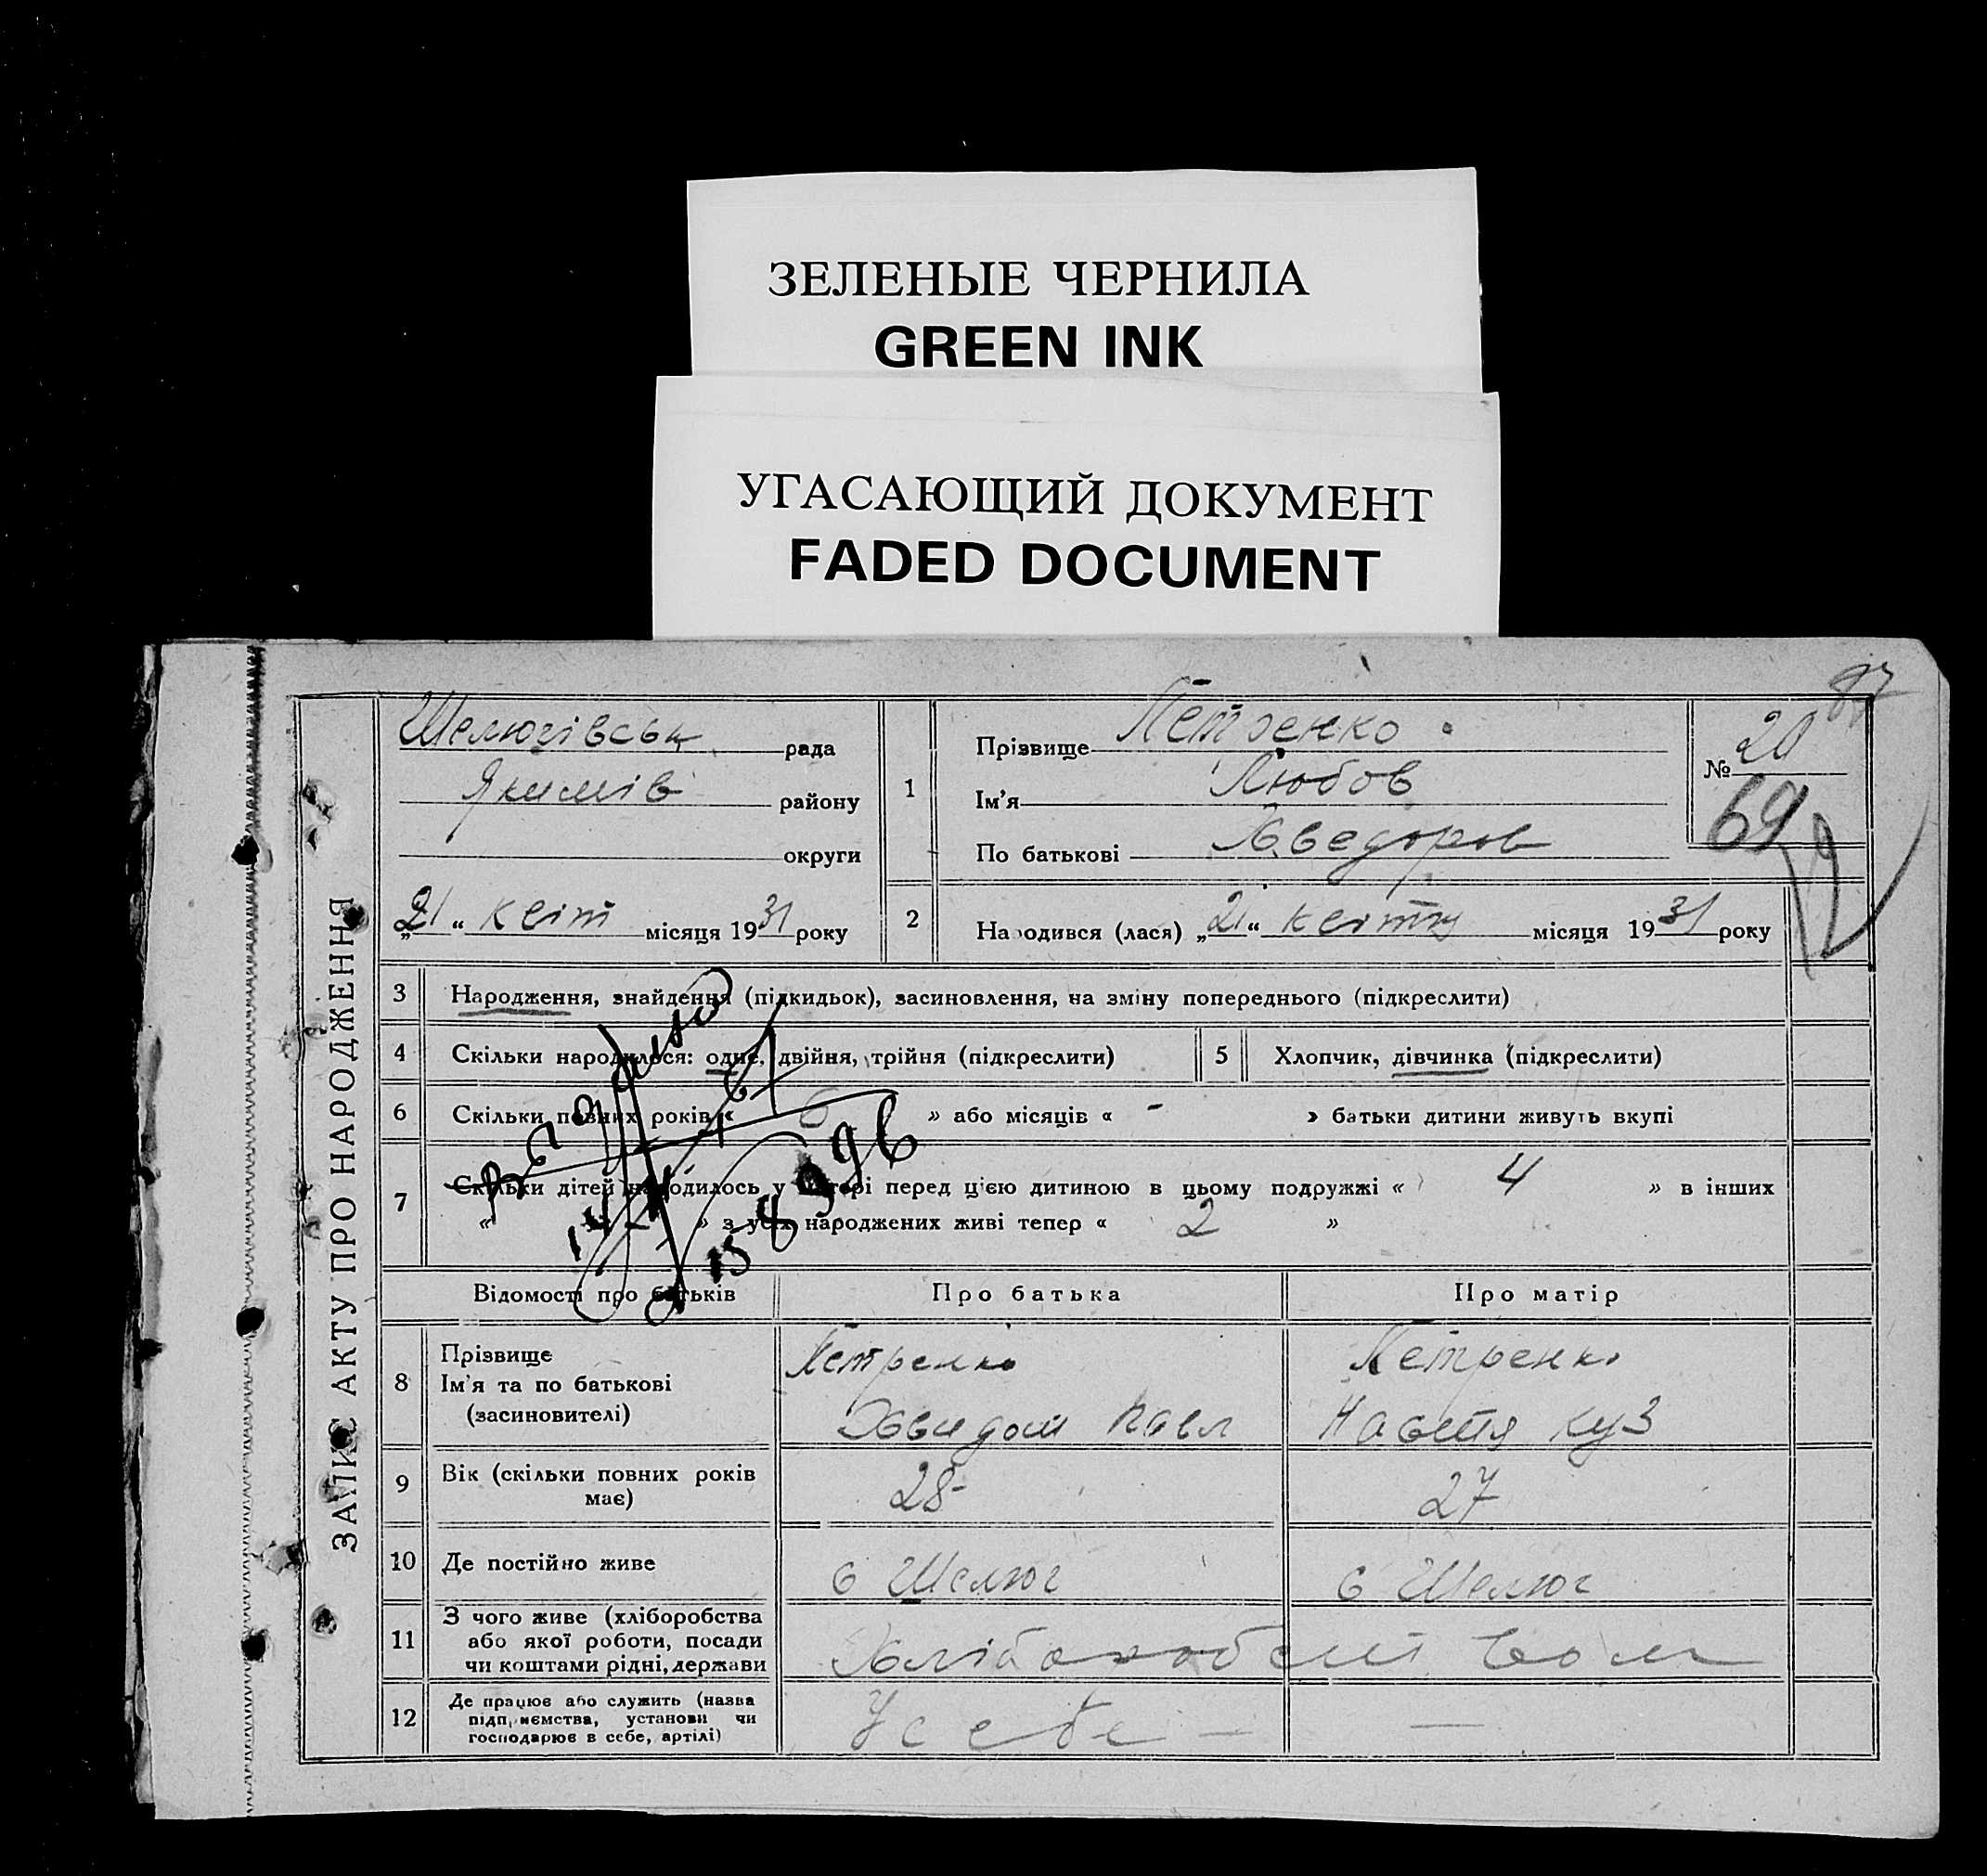 ЗЕЛЕНЫЕ ЧЕРНИЛА
GREEN INK
УГАСАЮЩИЙ ДОКУМЕНТ
FADED DOCUMENT
87
ЗАПИС АКТУ ПРО НАРОДЖЕННЯ
Шелюгівськ рада
Якимів району
округи
„21“ квіт місяця 1931 року
1 Прізвище Петренко
Ім'я Любов
По батькові Хведоров
№ 20
69
2 Народився (лася) „21“ квітн місяця 1931 року
3 Народження, знайдення (підкидьок), засиновлення, на зміну попереднього (підкреслити)
4 Скільки народилося: одне, двійня, трійня (підкреслити) 5 Хлопчик, дівчинка (підкреслити)
6 Скільки повних років „ 6 » або місяців « - » батьки дитини живуть вкупі
7 Скільки дітей народилось у матері перед цією дитиною в цьому подружжі « 4 » в інших
« » з усіх народжених живі тепер « 2 »
Відомості про батьків Про батька Про матір
8 Прізвище
Ім'я та по батькові
(засиновителі)
Петренко
Павл
Петренко
Настя Куз
9 Вік (скільки повних років
має)
28
27
10 Де постійно живе
с Шелюг
с Шелюг
11 З чого живе (хліборобства
або якої роботи, посади
чи коштами рідні, держави
Хліборобством
12 Де працює або служить (назва
підприємства, установи чи
господарює в себе, артілі)
У себе – —